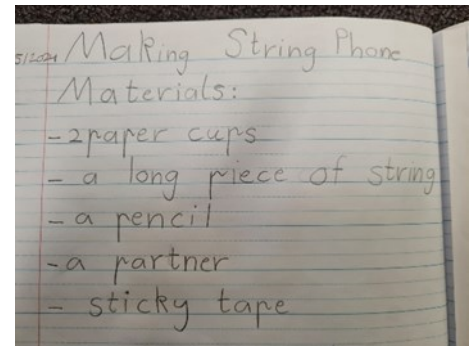 Making String Phone
Materials:
- 2 paper cups
- a long piece of string
- a pencil
- a partner
- sticky tape